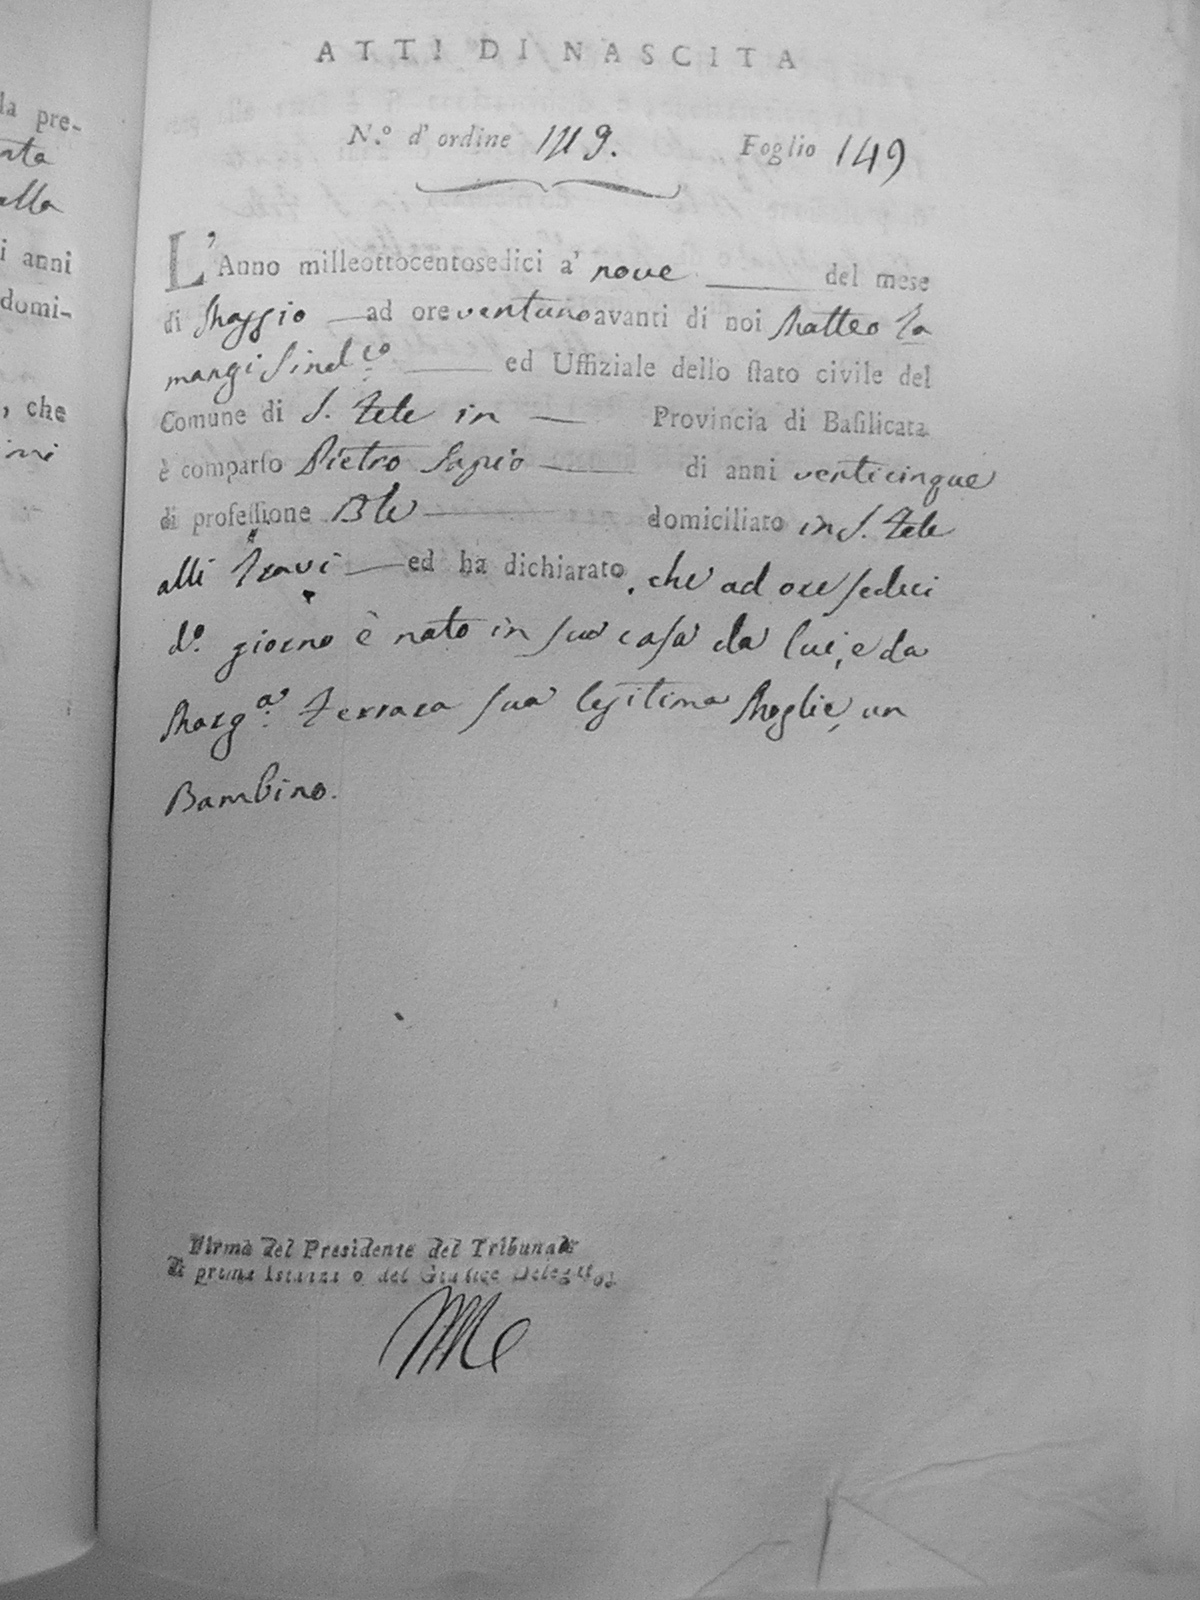 la pre-
nta
alla
i anni
domi-
, che
ini
ATTI DI NASCITA
N.º d'ordine 149. Foglio 149
L'Anno milleottocentosedici a' nove del mese
di Maggio ad ore ventuno avanti di noi Matteo La
mangi Sind.co ed Uffiziale dello ſtato civile del
Comune di S. Fele in Provincia di Baſilicata
è comparſo Pietro Sapio di anni venticinque
di profeſſione Ble domiciliato in S. Fele
alli Travi ed ha dichiarato, che ad ore sedici
d.º giorno è nato in sua casa da lui, e da
Marg.a Ferrara sua legitima Moglie, un
Bambino.
Firma del Presidente del Tribunale
di prima Istanza o del Giudice Delegato.